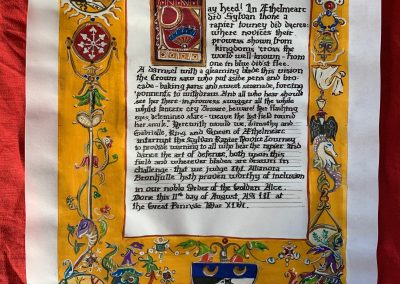 ay heed! In Æthelmearc
did Sylvan thone a
rapier tourney did dycree
where novices their
prowess shown from
kingdoms 'cross the
world well-known - from
one in blue didst flee.
A damsel with a gleaming blade this unison
the Crowns saw who put aside pens and bro-
cade - baking pans and sweet serenade, forcing
opponents to withdraw. And all who hear should
see her there - in prowess swagger all the while
whilst fencers cry Beware, beware the flashing
eyes
smile. Herewith would we, Timothy and
Gabrielle, King and Queen of Æthelmearc
interrupt the Sylvan Rapier Novice Tourney
to produce warning to all who hear the rapier and
dance the art of defense, both upon this
field and wherever blades are drawn in
challenge - that we judge Tha Alianora
Bronhulle hath proven worthy of inclusion
in our noble Order of the Golden Alce.
Done this 11th day of August, AS III at
the Great Pennsic War XLVI.